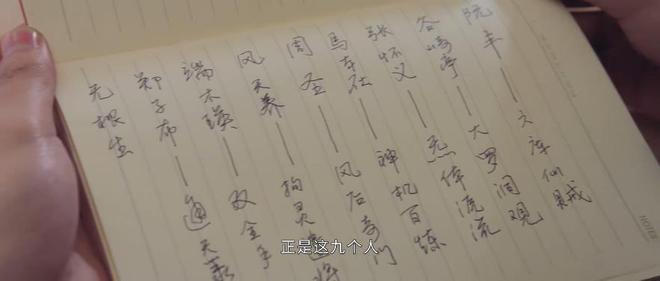 阮丰——六库仙贼
谷畸亭——大罗洞观
张怀义——炁体流流
马本在——神机百炼
周圣——风后奇门
风天养——拘灵遣将
端木瑛——双全手
郑子布——通天箓
无根生
NOTES
正是这九个人